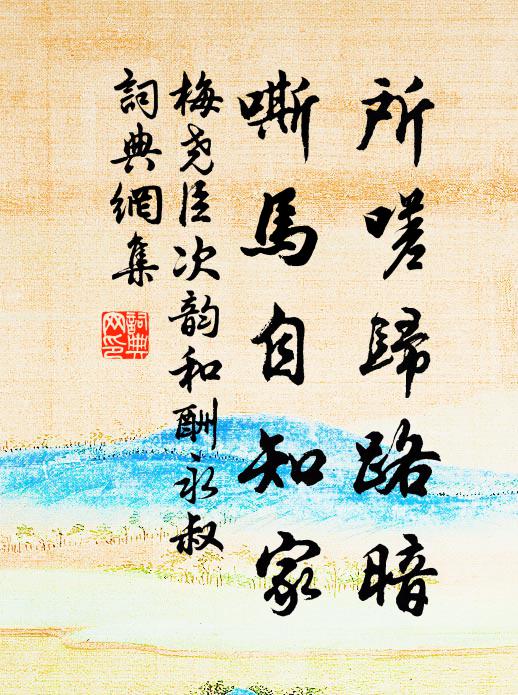 所嗟歸路暗
嘶馬自知家
梅尧臣次韵和酬永叔
詞典網集
詞典
网印